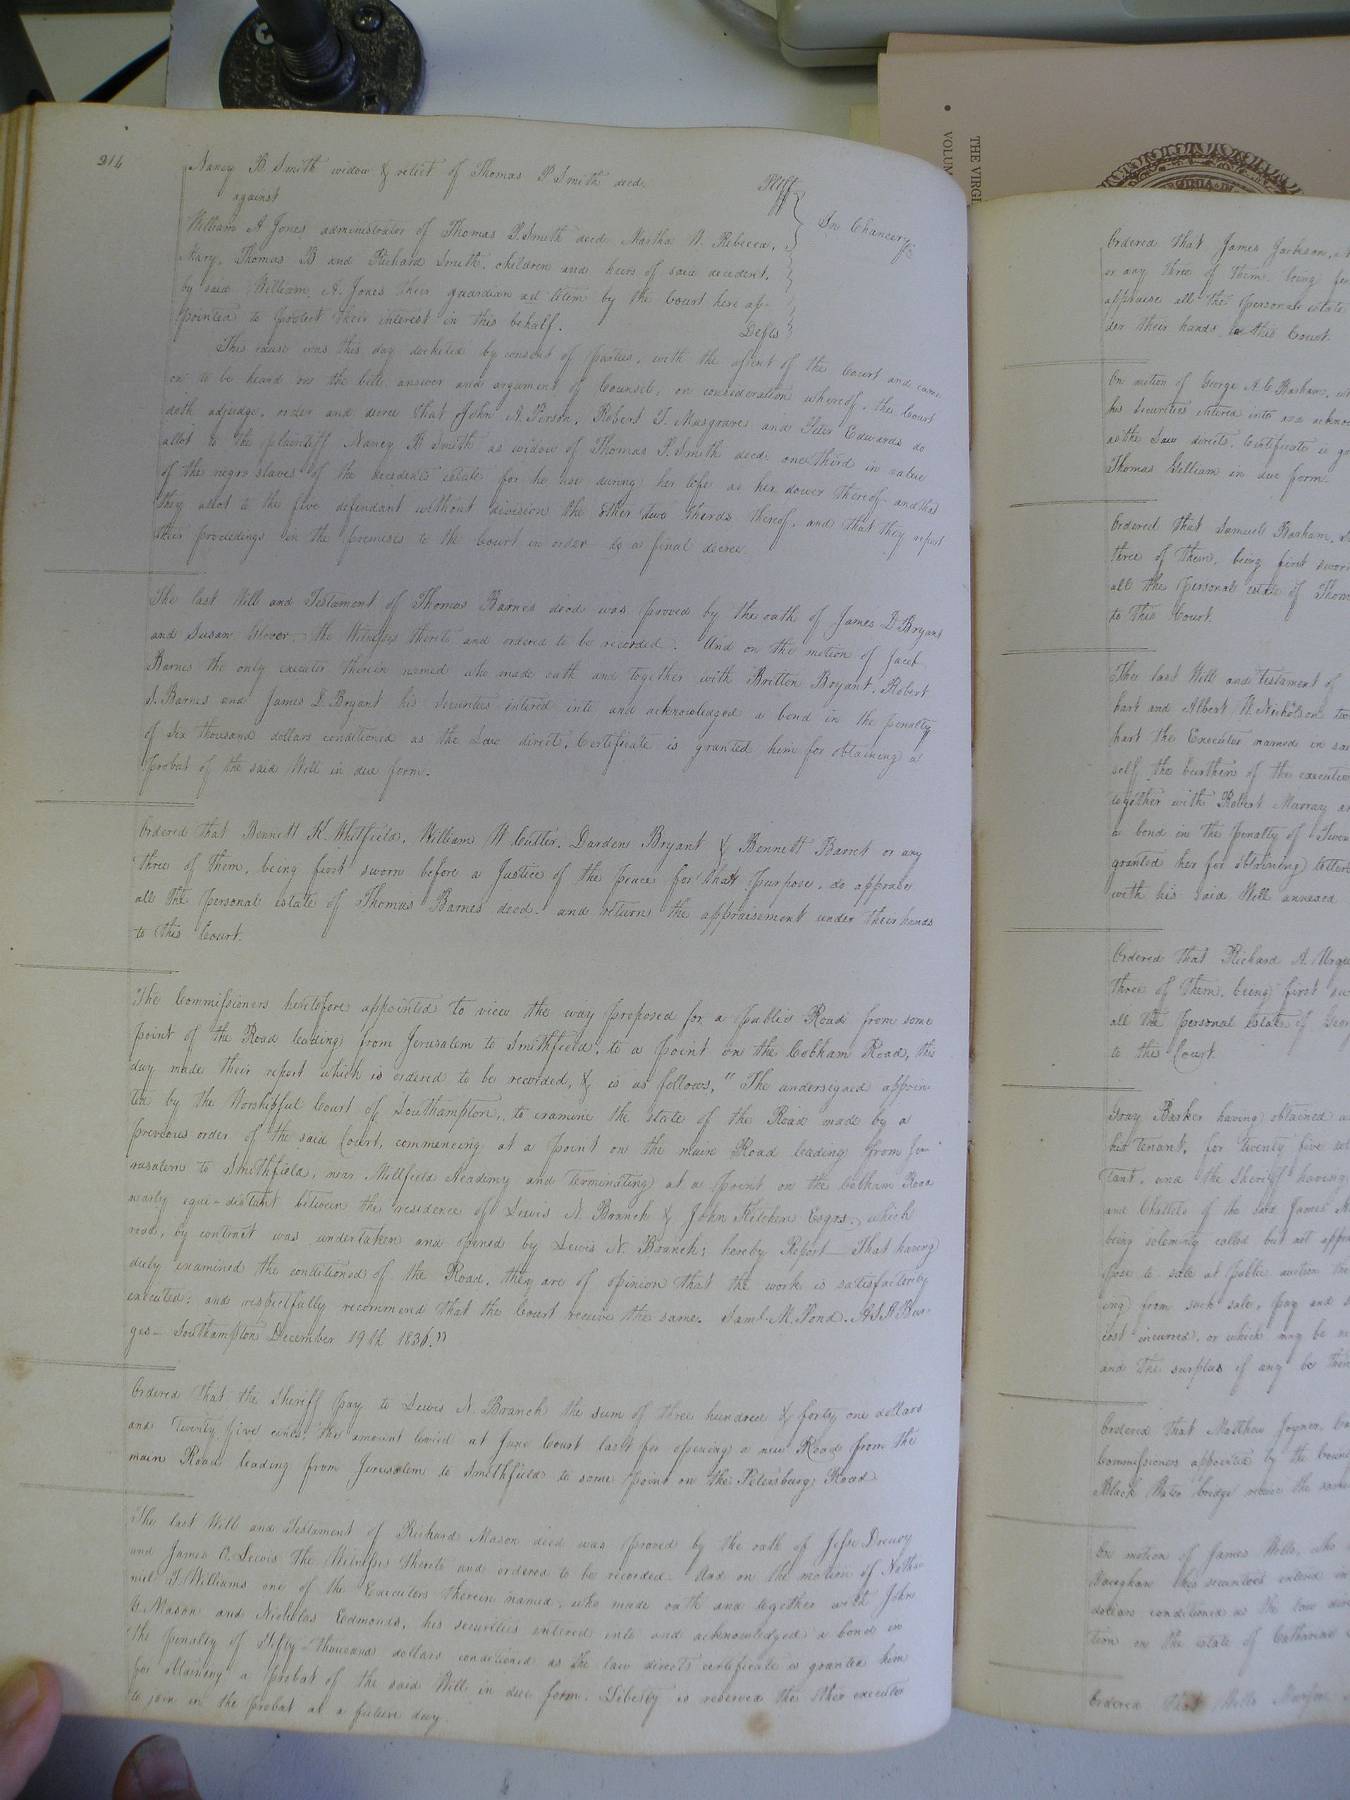 THE VIRGI
VOLUM
VIRGINIA
214
Nancy B Smith widow & relict of Thomas P Smith decd Pltff
against
In Chancery
William A Jones administrator of Thomas P. Smith decd Martha W. Rebecca,
Mary, Thomas B and Richard Smith, children and heirs of said decedent,
by said William A. Jones their guardian ad litem by the Court here ap-
pointed to protect their interest in this behalf. Defts
This cause was this day docketed by consent of parties, with the assent of the Court and came
on to be heard on the bill, answer and argument of Counsel, on consideration whereof, the Court
doth adjudge, order and decree that John A Person, Robert T. Musgrave and Peter Edwards do
allot to the plaintiff Nancy B Smith as widow of Thomas P. Smith decd one third in value
of the negro slaves of the decedents estate for he use during her life as her dower thereof and that
they allot to the five defendant without division the other two thirds thereof, and that they report
their proceedings in the premises to the Court in order to a final decree
The last Will and Testament of Thomas Barnes decd was proved by the oath of James D Bryant
and Susan Glover the Witnesses thereto and ordered to be recorded. And on the motion of Jacob
Barnes the only executor therein named who made oath and together with Britten Bryant, Robert
S. Barnes and James D. Bryant his securities entered into and acknowledged a bond in the penalty
of Six thousand dollars conditioned as the Law directs, Certificate is granted him for obtaining a
probat of the said Will in due form.
Ordered that Bennett K. Whitfield, William W Cutler, Dardens Bryant & Bennett Barret or any
three of them, being first sworn before a Justice of the peace for that purpose, do appraise
all the personal estate of Thomas Barnes decd. and return the appraisement under their hands
to this Court.
The Commissioners heretofore appointed to view the way proposed for a public Road from some
point of the Road leading from Jerusalem to Smithfield, to a point on the Cobham Road, this
day made their report which is ordered to be recorded, & is as follows, "The undersigned appoin-
ted by the Worshipful Court of Southampton, to examine the state of the Road made by a
previous order of the said Court, commencing at a point on the main Road leading from Je-
rusalem to Smithfield, near Millfield Academy and terminating at a point on the Cobham Road
nearly equi-distant between the residence of Lewis N. Branch & John Ketchen Esqrs. which
road, by contract was undertaken and opened by Lewis N. Branch; hereby Report— That having
duly examined the conditioned of the Road, they are of opinion that the work is satisfactorily
executed; and respectfully recommend that the Court receive the same. Saml. M. Pond. A.S.H. Bur-
ges— Southampton December 19th 1836."
Ordered that the Sheriff pay to Lewis N. Branch the sum of three hundred & forty one dollars
and twenty five cents, the amount levied at June Court last for opening a new Road from the
main Road leading from Jerusalem to Smithfield to some point on the Petersburg Road
The last Will and Testament of Richard Mason decd was proved by the oath of Jesse Drewry
and James O. Lewis the Witnesses thereto and ordered to be recorded. And on the motion of Natha-
niel T. Williams one of the Executors therein named, who made oath and together with John
Y. Mason and Nicholas Edmonds, his securities entered into and acknowledged a bond in
the penalty of Fifty-thousand dollars conditioned as the law directs certificate is granted him
for obtaining a probat of the said Will in due form. Liberty is reserved the other executor
to join in the probat at a future day.
Ordered that James Jackson,
or any three of them being
appraise all the personal estate
der their hands to this Court.
On motion of George A. C Barham,
his securities entered into and
as the Law directs, Certificate is
Thomas Gilliam in due form.
Ordered that Samuel Barham,
three of them, being first sworn
all the personal estate of
to this Court.
The last Will and testament of
hart and Albert W. Nicholson
hart the Executor named in
self the burthen of the
together with Robert Murray
a bond in the penalty of
granted her for obtaining
with his said Will annexed
Ordered that Richard A.
three of them, being first
all the personal estate of
to this Court.
Gray Barker having obtained
his tenant, for twenty five
tant, and the Sheriff having
and Chattels of the said James
being solemnly called but not
pose to sale at public auction the
ing from such sale, pay and
cost incurred, or which may be
and the surplus if any be
Ordered that Matthew Joyner,
Commissioners appointed by the
Black Water bridge receive the
On motion of James Wells, who
Vaughan his securities entered
dollars conditioned as the law
tion on the estate of Catharine
Ordered that Mills